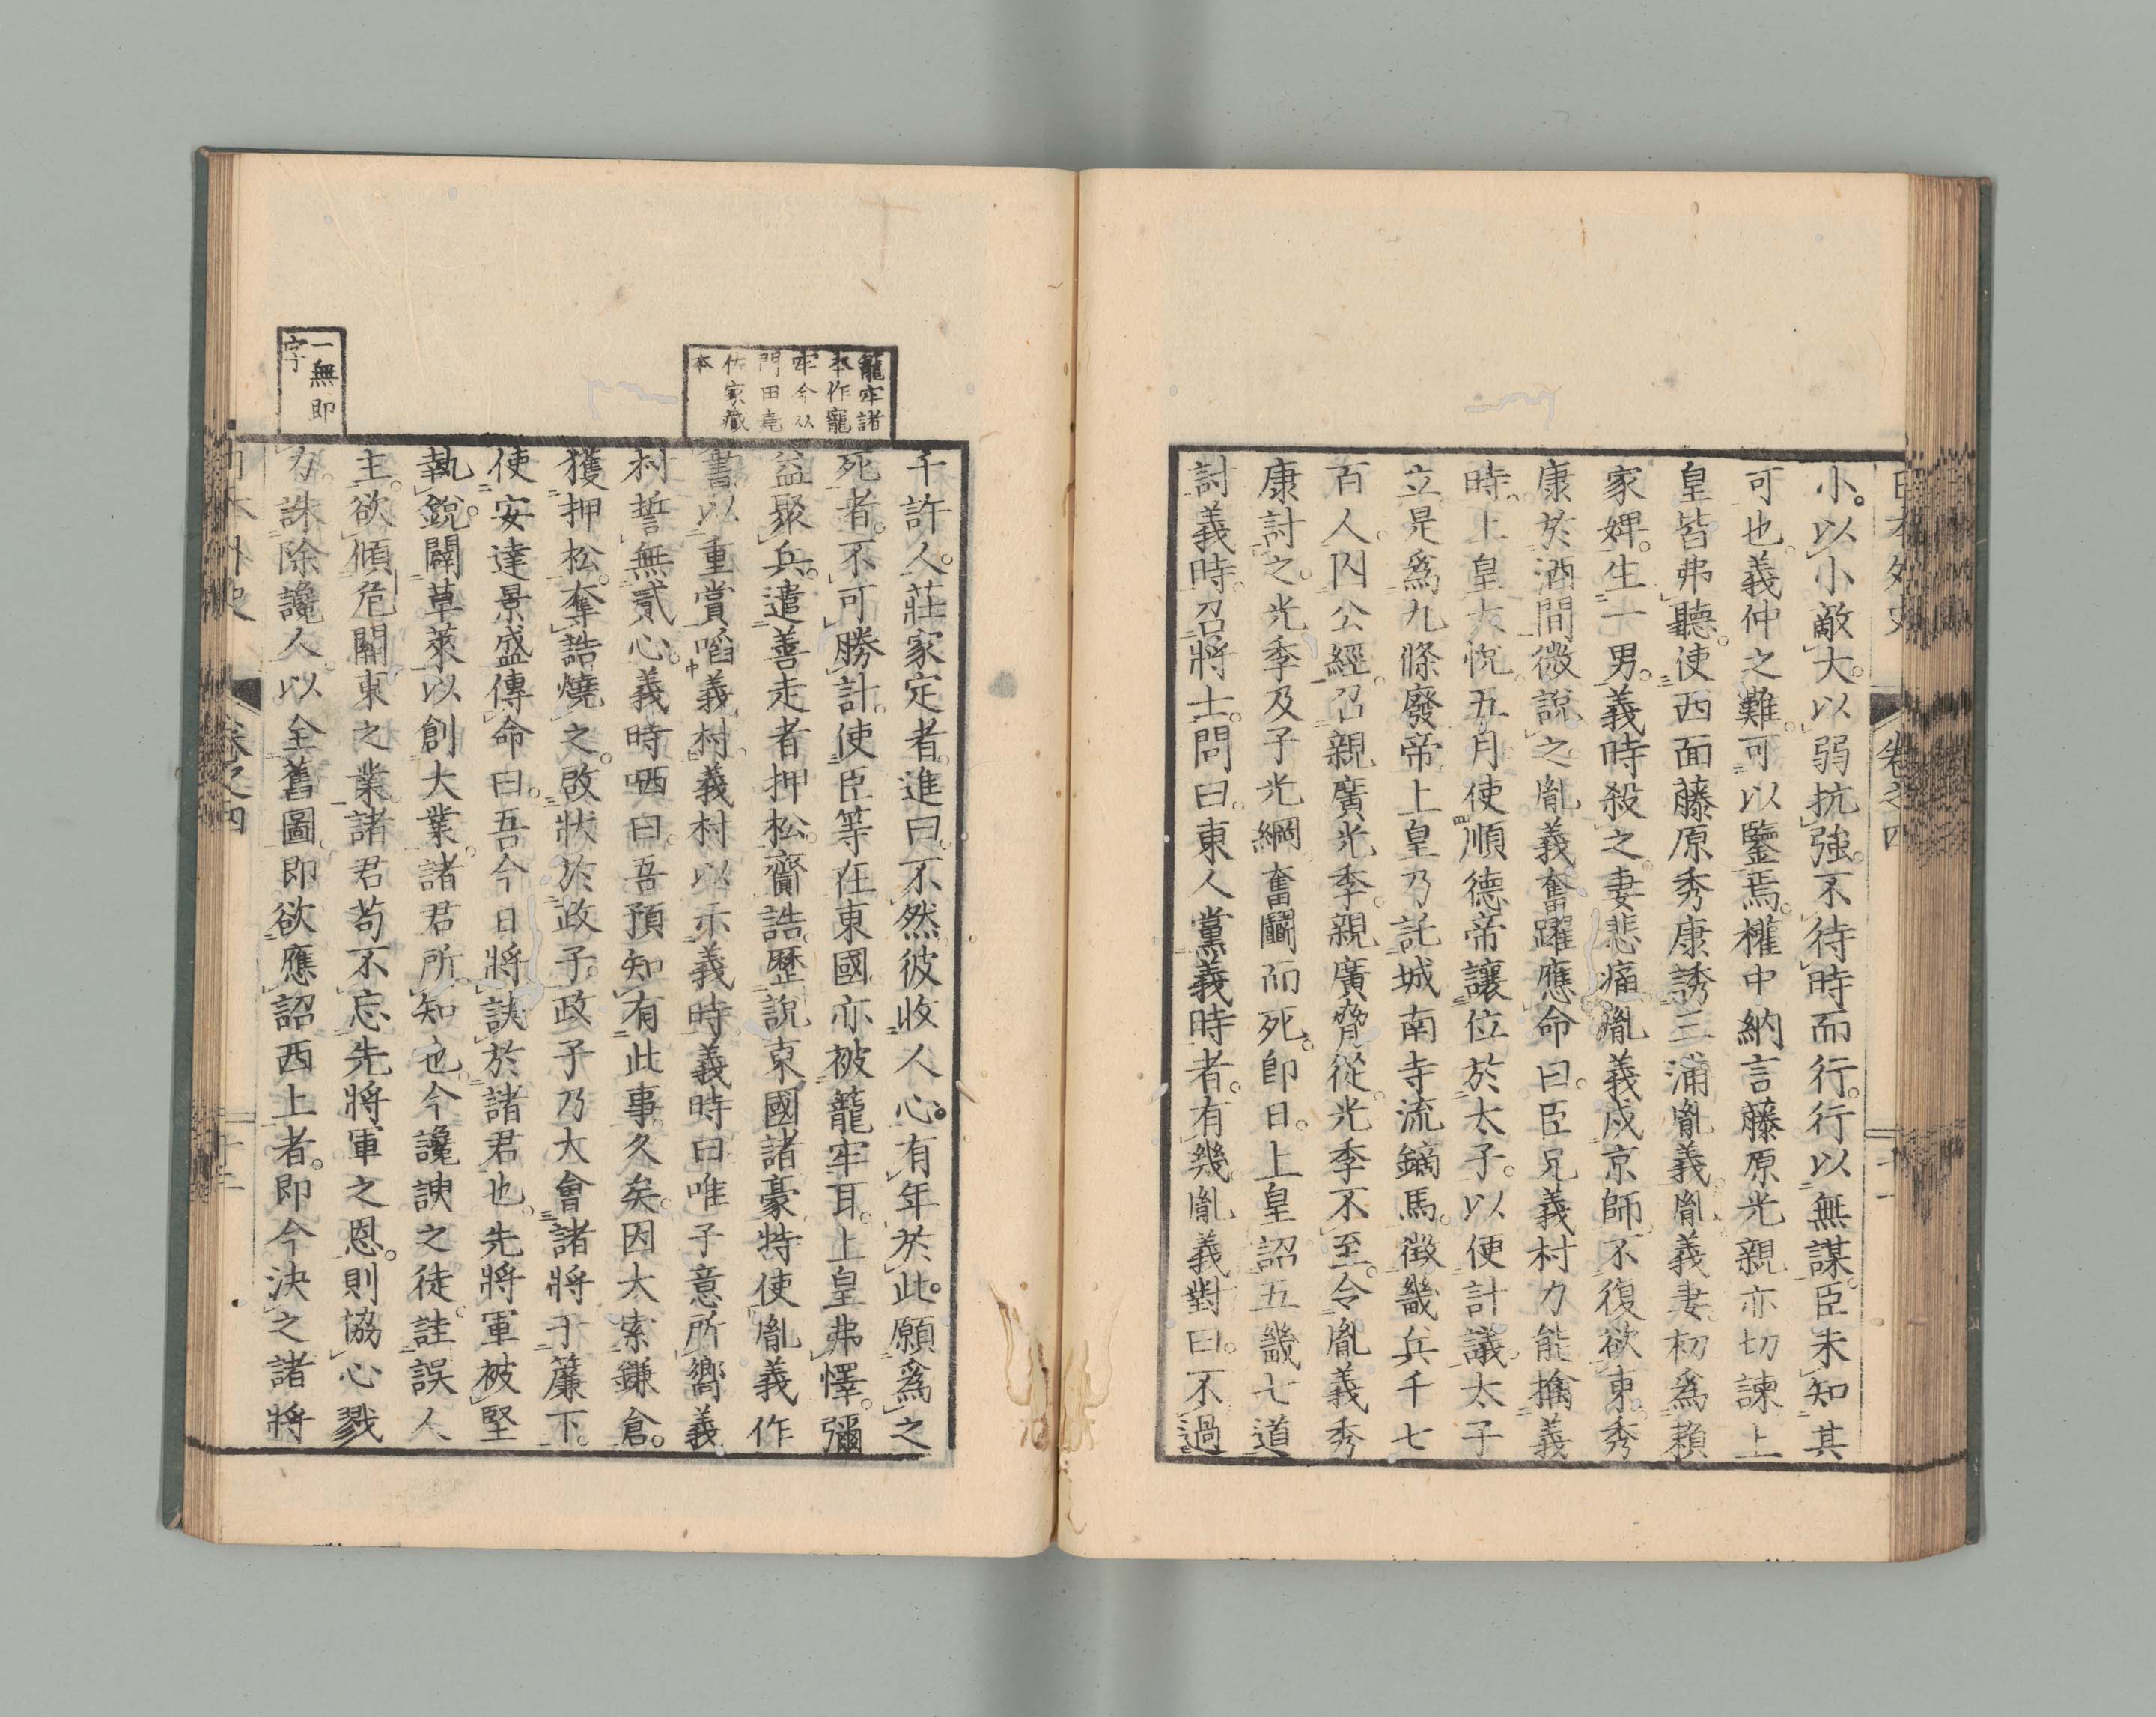 日本外史 卷之四 十一
小。以小敵大。以弱抗強。不待時而行。行以無謀。臣未知其
可也。義仲之難。可以鑒焉。權中納言藤原光親亦切諫。上
皇皆弗聽。使西面藤原秀康誘三浦胤義。胤義妻初爲賴
家婢。生一男。義時殺之。妻悲痛。胤義戍京師。不復欲東。秀
康於酒間微說之。胤義奮躍應命曰。臣兄義村力能擒義
時。上皇大悅。五月使順德帝讓位於太子。以便計議。太子
立。是爲九條廢帝。上皇乃託城南寺流鏑馬。徵畿兵千七
百人。囚公經。召親廣光季。親廣脅從。光季不至。令胤義秀
康討之。光季及子光綱奮鬭而死。即日。上皇詔五畿七道
討義時。召將士。問曰。東人黨義時者。有幾。胤義對曰。不過
籠牢諸
本作寵
牢今以
門田堯
佐家藏
本
千許人。莊家定者。進曰。不然。彼收人心。有年於此。願爲之
死者。不可勝計。使臣等在東國。亦被籠牢耳。上皇弗懌。彌
益聚兵。遣善走者押松。齎誥歷說東國諸豪。特使胤義作
書以重賞啗義村。義村以示義時。義時曰。唯子意所嚮。義
村誓無貳心。義時哂曰。吾預知有此事。久矣。因大索鎌倉。
獲押松。奪誥燒之。啟狀於政子。政子乃大會諸將于簾下。
使安達景盛傳命曰。吾今日將訣於諸君也。先將軍被堅
執銳。闢草萊。以創大業。諸君所知也。今讒諛之徒。詿誤人
主。欲傾危關東之業。諸君苟不忘先將軍之恩。則協心戮
力。誅除讒人。以全舊圖。即欲應詔西上者。即今決之。諸將
一無即
字
日本外史 卷之四 十二